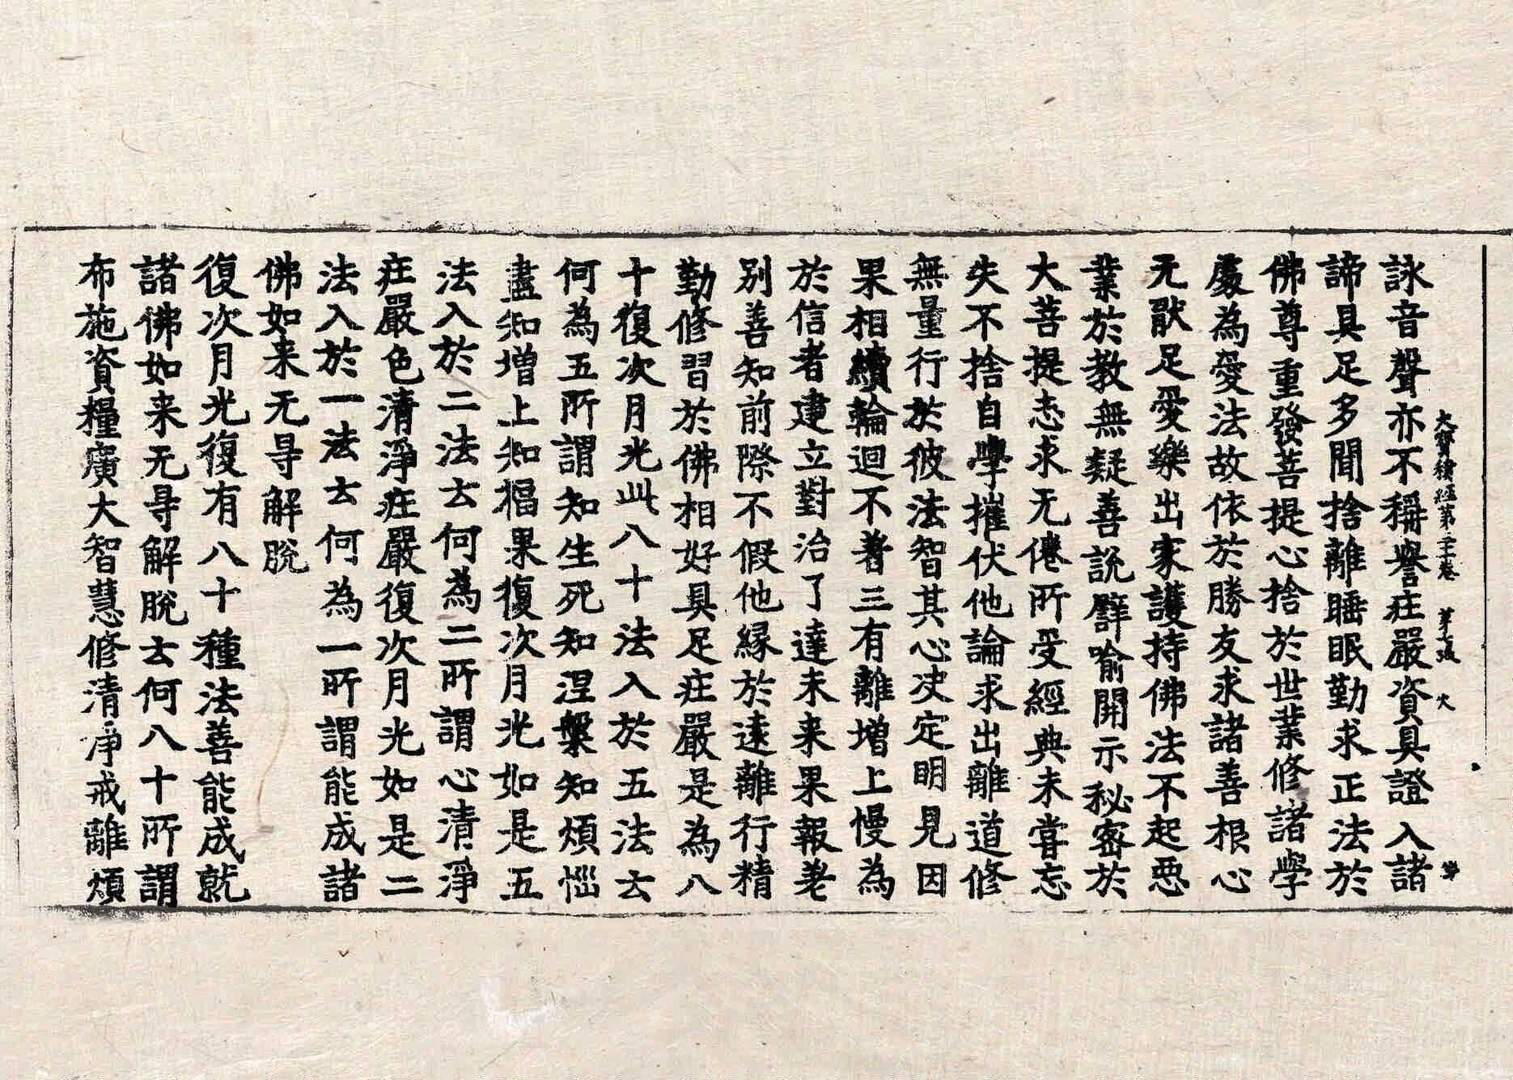 大寶積經第三十卷 第七張 火
詠音聲亦不稱譽疘嚴資具證入諸
諦具足多聞捨離睡眠勤求正法於
佛尊重發菩提心捨於世業修諸學
處為愛法故依於勝友求諸善根心
无猒足愛樂出家護持佛法不起惡
業於教無疑善說譬喻開示秘密於
大菩提志求无倦所受經典未嘗忘
失不捨自學摧伏他論求出離道修
無量行於彼法智其心决定明見因
果相續輪迴不著三有離增上慢為
於信者建立對治了達未来果報差
別善知前際不假他緣於遠離行精
勤修習於佛相好具足疘嚴是為八
十復次月光此八十法入於五法云
何為五所謂知生死知涅槃知煩惱
盡知增上知福果復次月光如是五
法入於二法云何為二所謂心清淨
疘嚴色清淨疘嚴復次月光如是二
法入於一法云何為一所謂能成諸
佛如来无㝵解脫
復次月光復有八十種法善能成就
諸佛如来无㝵解脫云何八十所謂
布施資糧廣大智慧修清淨戒離煩